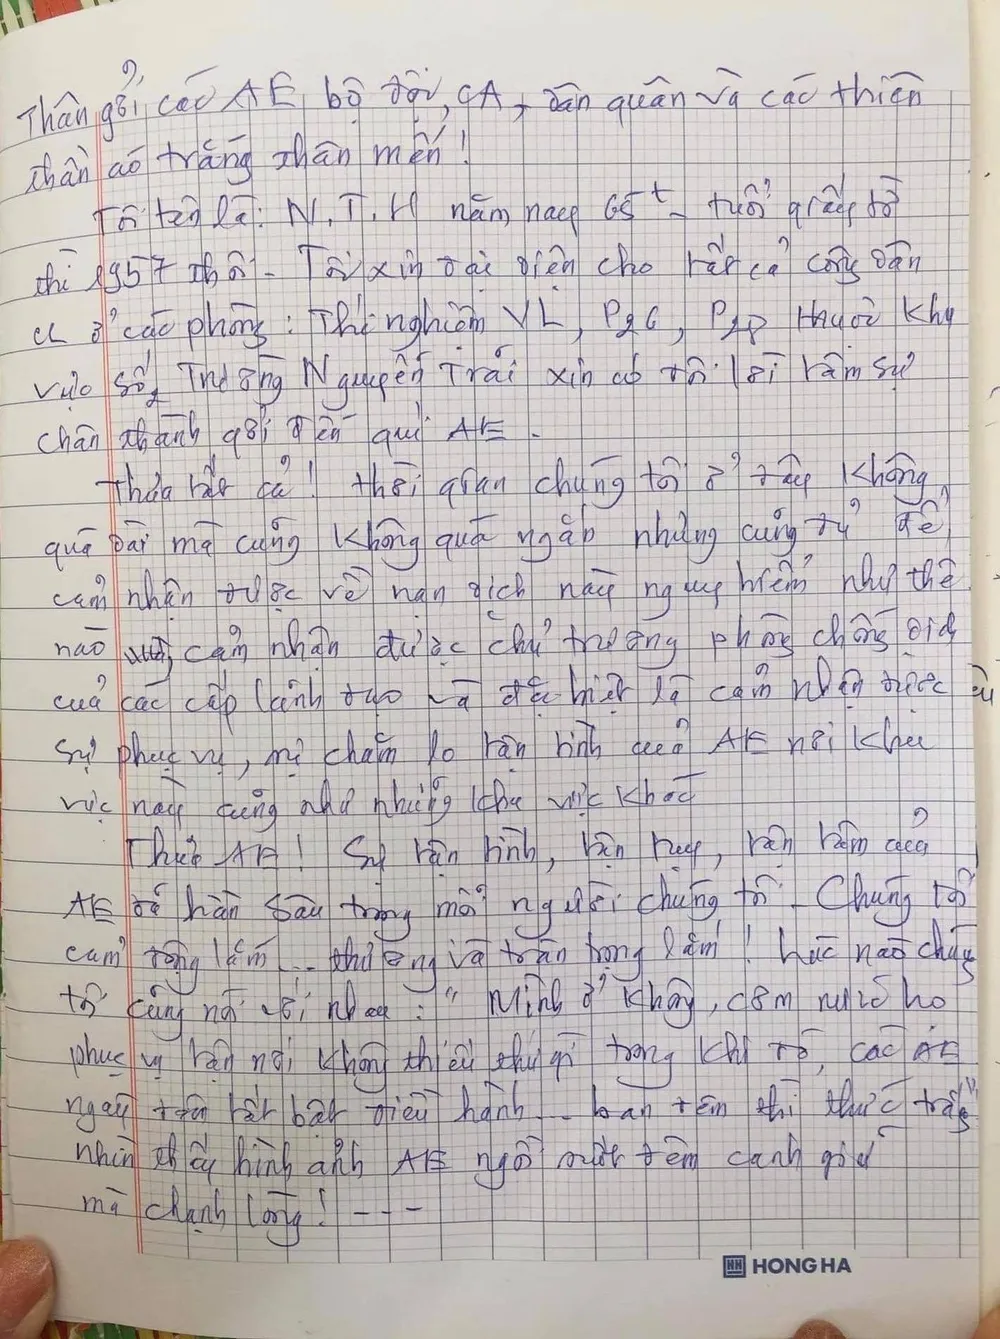 Thân gởi các AE bộ đội, CA, dân quân và các thiên
thần áo trắng thân mến!
Tôi tên là: N.T.H năm nay 65t - tuổi giấy tờ
thì 1957 thôi - Tôi xin đại diện cho tất cả công dân
CL ở các phòng: Thí nghiệm VL, P26, thuộc khu
vực số, Trường Nguyễn Trãi xin có đôi lời tâm sự
chân thành gởi đến quí AE.
Thưa tất cả! thời gian chúng tôi ở đây không
quá dài mà cũng không quá ngắn nhưng cũng đủ để
cảm nhận được về nạn dịch này nguy hiểm như thế
nào cảm nhận được chủ trương phòng chống dịch
của các cấp lãnh đạo và đặc biệt là cảm nhận được
sự phục vụ, chăm lo tận tình của AE nơi khu
vực này cũng như những khu vực khác
Thưa AE! Sự tận tình, tận tụy, tận tâm của
AE đã hằn sâu trong mỗi người chúng tôi. Chúng tôi
cảm động lắm... thương và trân trọng lắm! lúc nào chúng
tôi cũng nói với nhau: " Mình ở không, cơm nước họ
phục vụ tận nơi không thiếu thứ gì trong khi đó, các AE
ngày đêm tất bật điều hành... ban đêm thì thức trắng"
nhìn thấy hình ảnh AE ngồi suốt đêm canh giữ
mà chạnh lòng! - - -
HONG HA